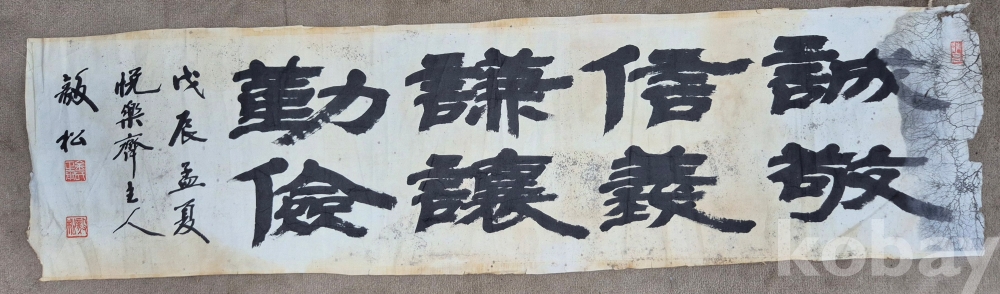 誠敬
信義
謙讓
勤儉
戊辰孟夏
悅樂齋主人
松
kobay